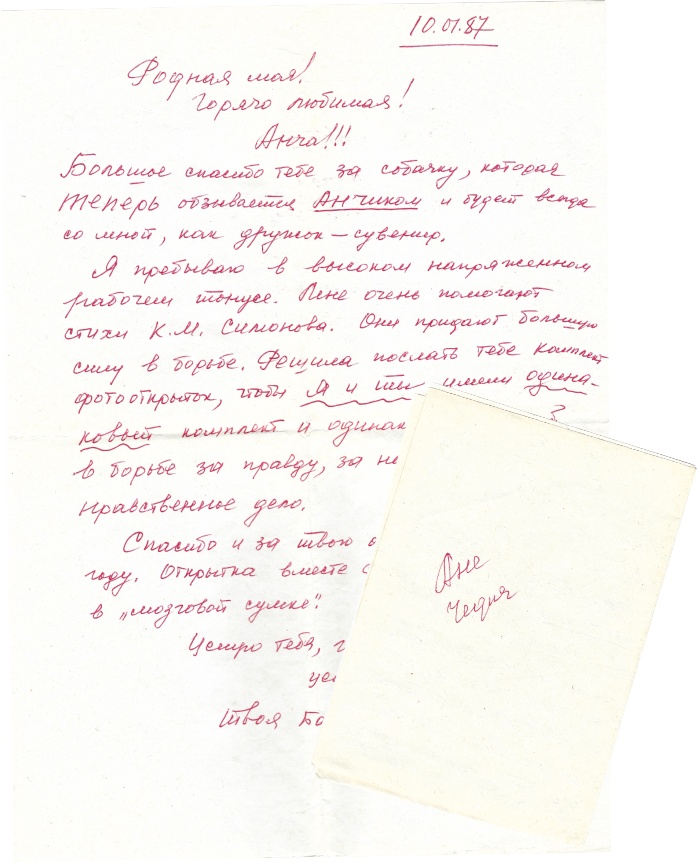 10.01.87
Родная моя!
Горячо любимая!
Анча!!!
Большое спасибо тебе за собачку, которая
теперь отзывается Анчиком и будет всегда
со мной, как дружок – сувенир.
Я пребываю в высоком напряженном
рабочем тонусе. Мне очень помогают
стихи К.М. Симонова. Они придают большую
силу в борьбе. Решила послать тебе комплект
фотооткрыток, чтобы я и ты имели одина-
ковый комплект и одинак
в борьбе за правду, за не
нравственное дело.
Спасибо и за твою о
году. Открытка вместе с
в „мозговой сумке".
Целую тебя, г
це
Твоя Ба
Ане